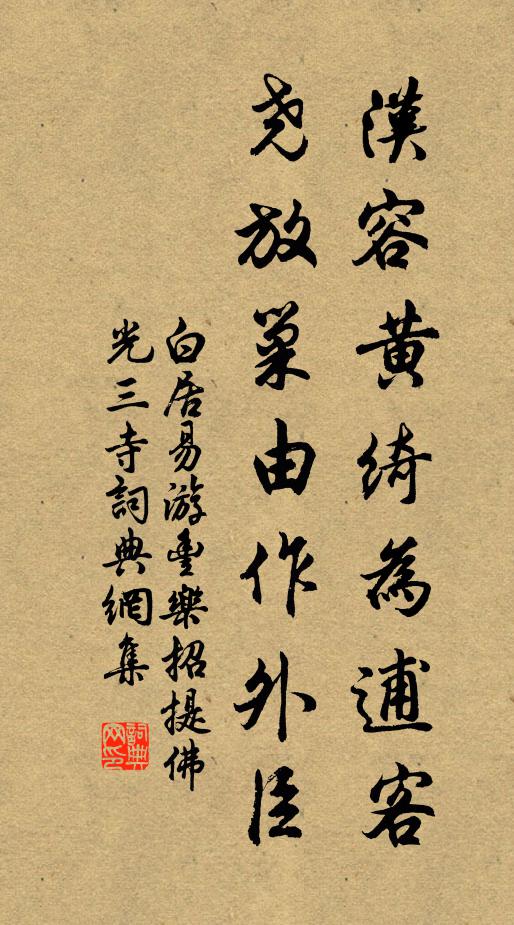 漢容黃綺為逋客
堯放巢由作外臣
白居易游豐樂招提佛
光三寺詞典網集
詞典
网印